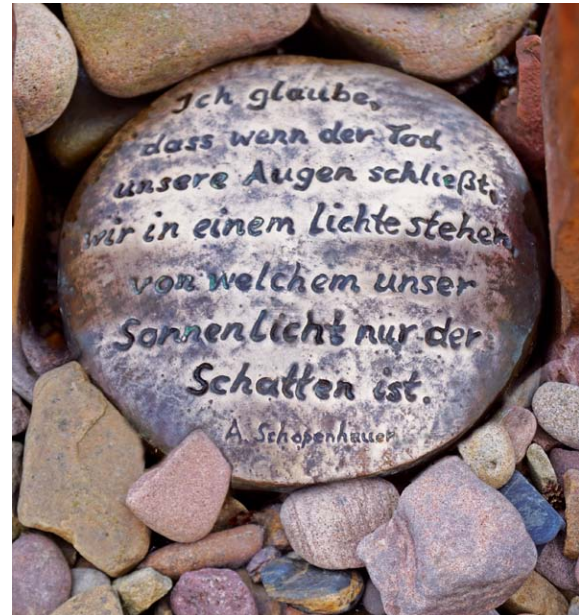 Ich glaube,
dass wenn der Tod
unsere Augen schließt,
wir in einem lichte stehen,
von welchem unser
Sonnenlicht nur der
Schatten ist.
A. Schopenhauer